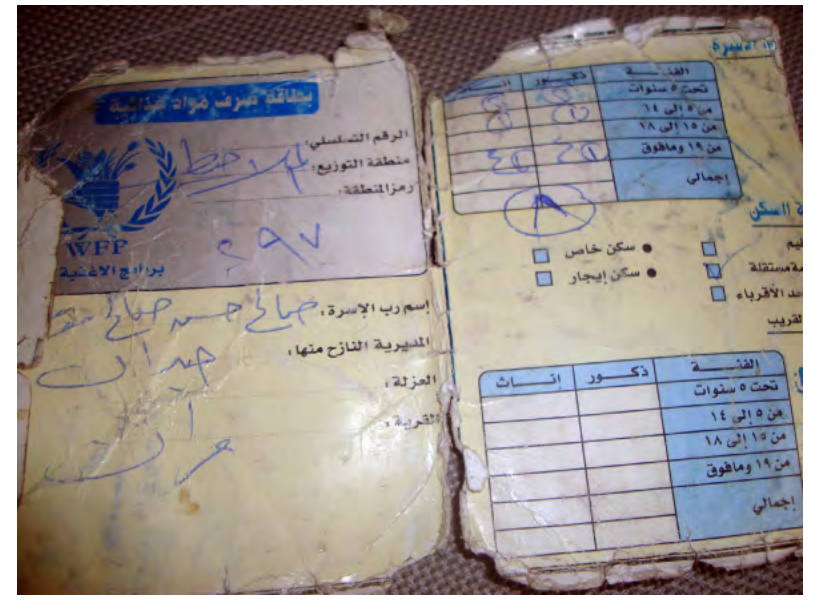 بطاقة صرف مواد غذائية
الرقم التسلسلي:
منطقة التوزيع: الملاحيط
رمز المنطقة:
٢٩٧
WFP
برنامج الاغذية
إسم رب الإسرة: صالح حسن صالح
المديرية النازح منها: حيدان
العزلة:
القرية: مران
الاسرة
الفئة ذكور إناث
تحت ٥ سنوات
من ٥ إلى ١٤ ١
من ١٥ إلى ١٨
من ١٩ ومافوق
إجمالي
٨
ة السكن
سكن خاص
سكن إيجار
يم
مة مستقلة
د الأقرباء
القريب
الفئة ذكور إناث
تحت ٥ سنوات
من ٥ إلى ١٤
من ١٥ إلى ١٨
من ١٩ ومافوق
إجمالي